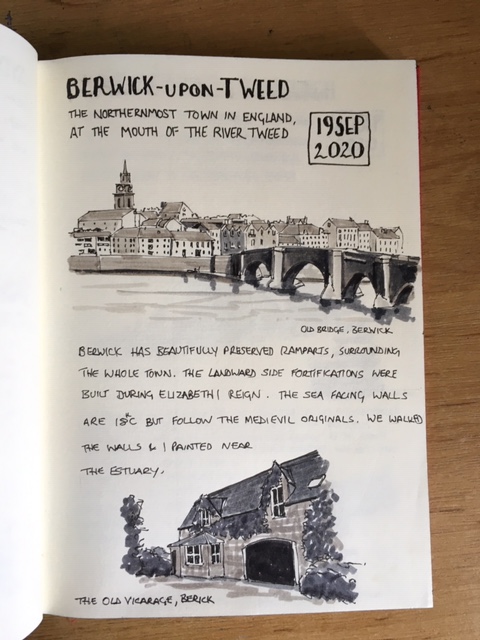 BERWICK-UPON-TWEED
THE NORTHERNMOST TOWN IN ENGLAND,
AT THE MOUTH OF THE RIVER TWEED
19 SEP
2020
OLD BRIDGE, BERWICK
BERWICK HAS BEAUTIFULLY PRESERVED RAMPARTS, SURROUNDING
THE WHOLE TOWN. THE LANDWARD SIDE FORTIFICATIONS WERE
BUILT DURING ELIZABETH I REIGN. THE SEA FACING WALLS
ARE 18C BUT FOLLOW THE MEDIEVIL ORIGINALS. WE WALKED
THE WALLS & I PAINTED NEAR
THE ESTUARY.
THE OLD VICARAGE, BERICK